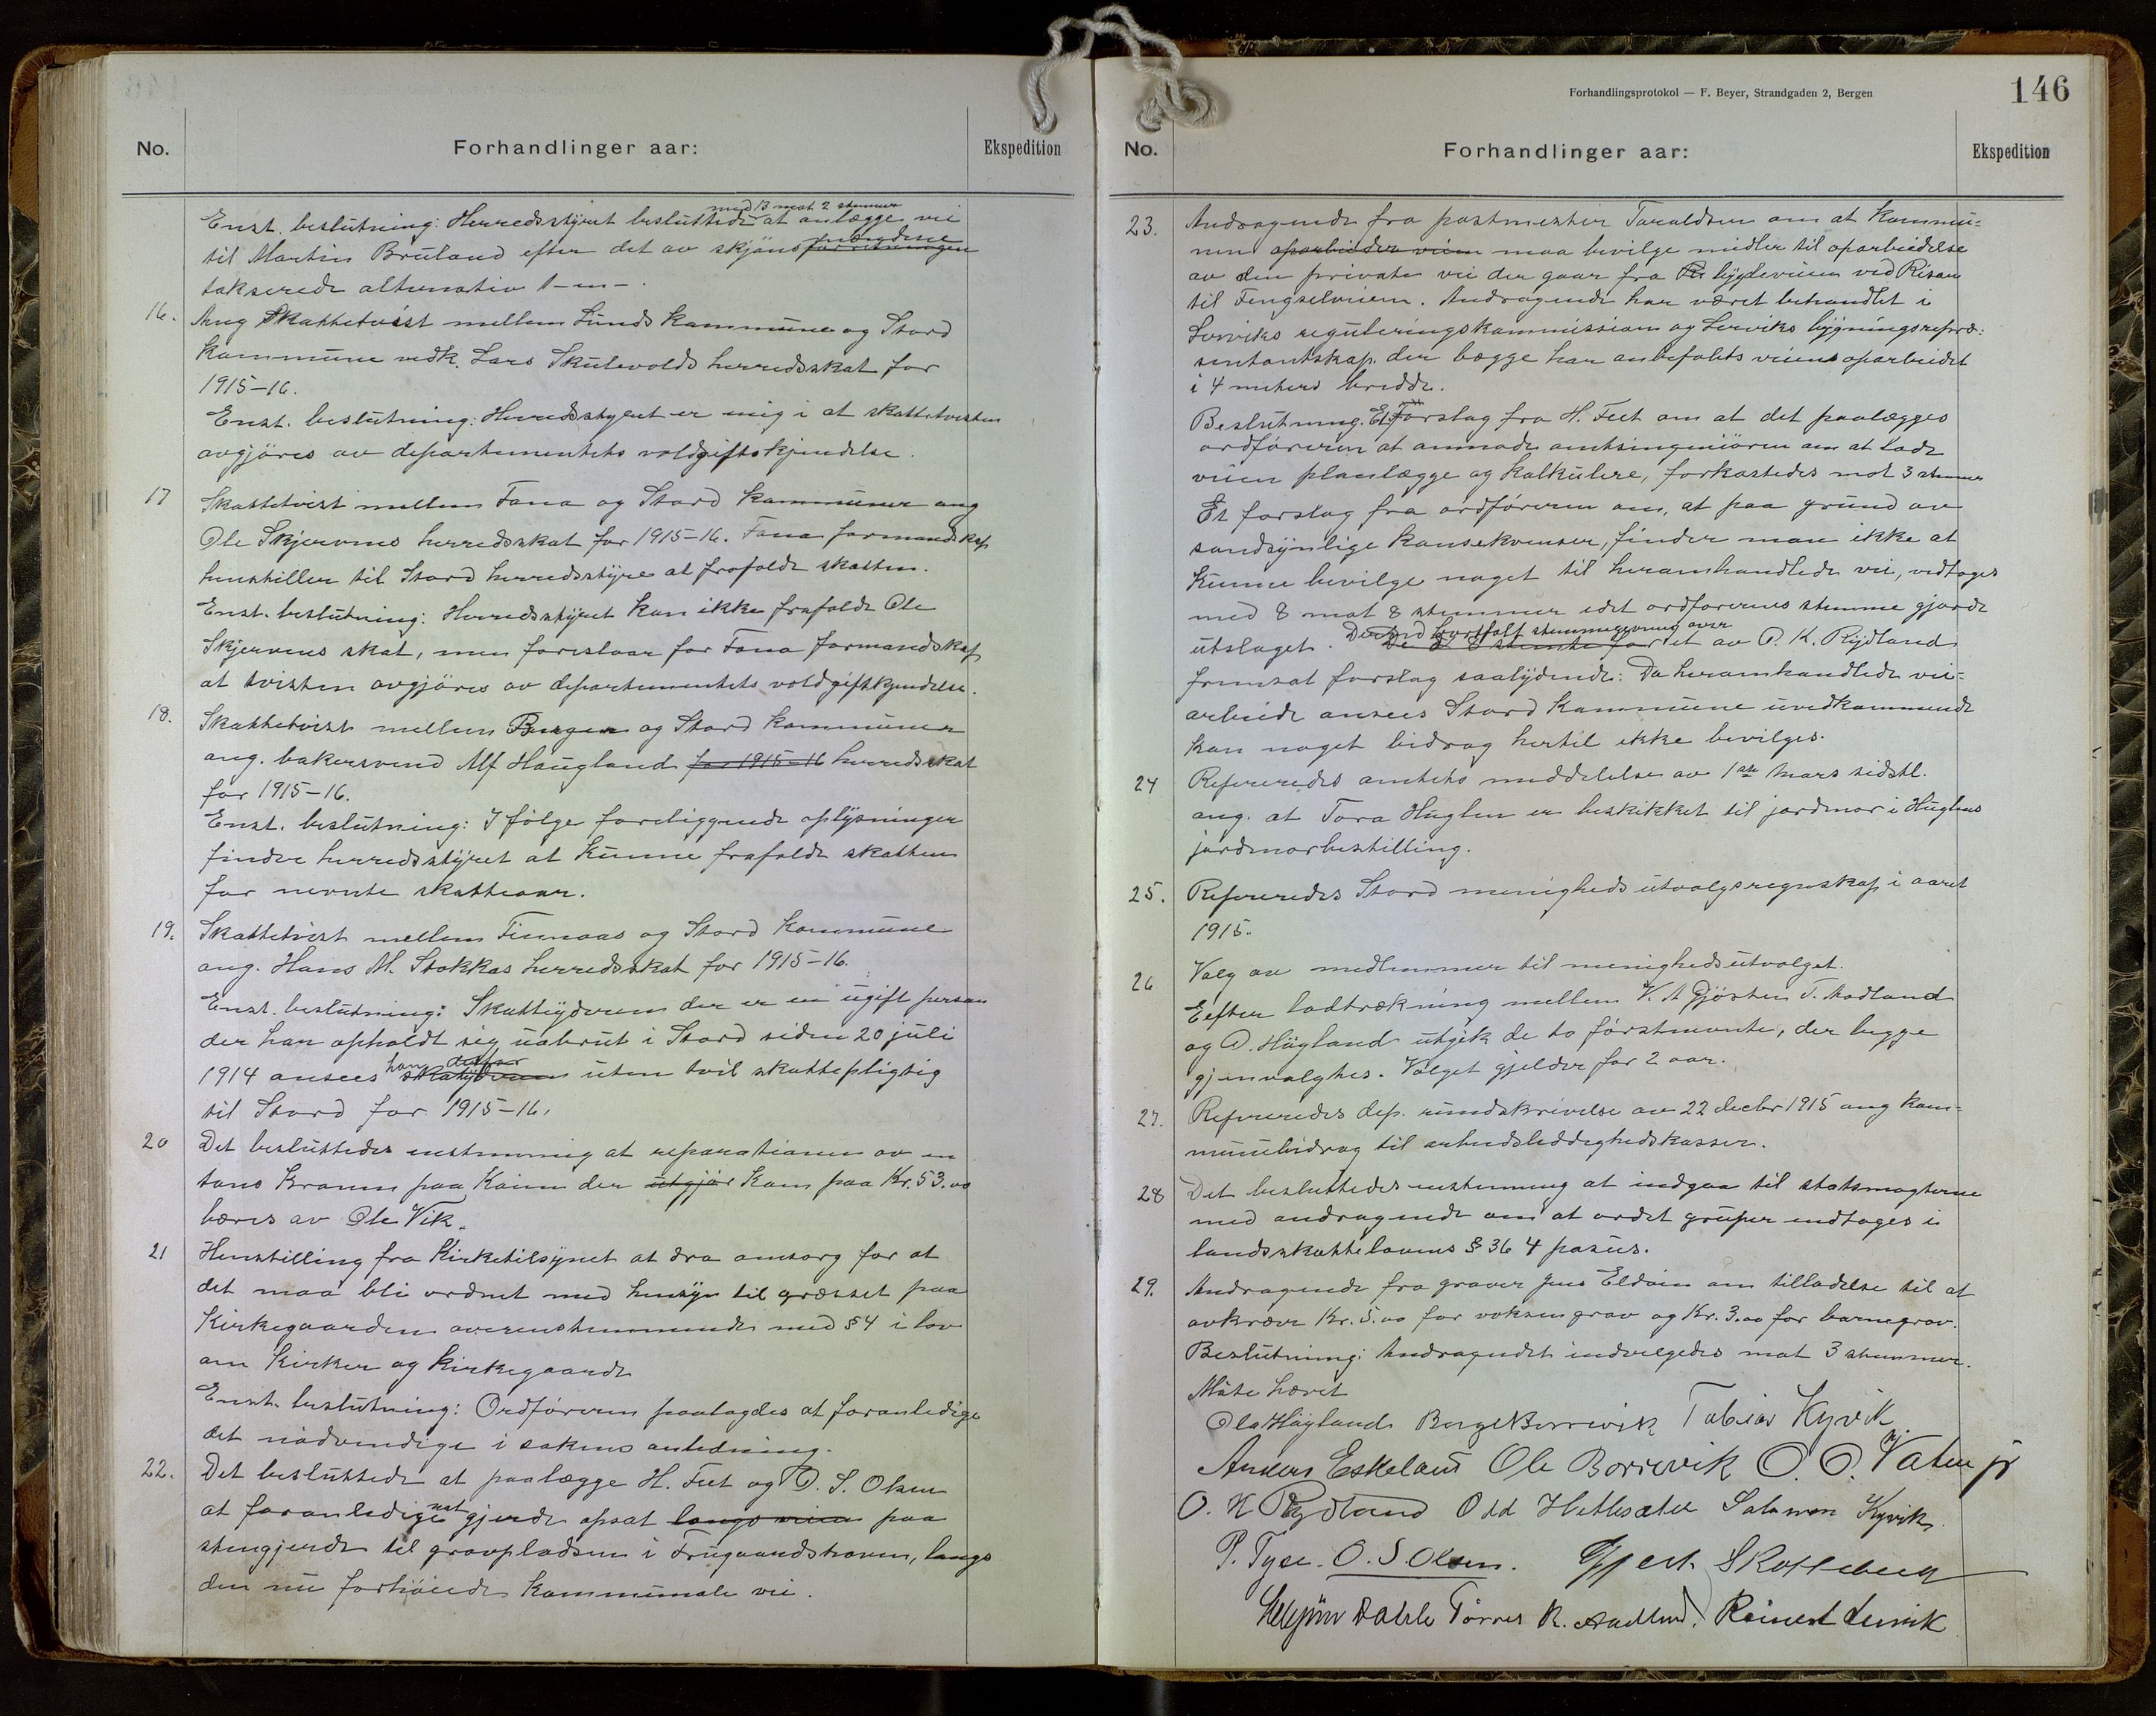 No.
Forhandlinger aar:
Ekspedition
med 13 mot 2 stemmer
Enst. beslutning: Herredsstyret besluttede at anlægge vei
til Martin Bruland efter det av skjøns forretningen
takserede alternativ 1-m-.
16. Ang Skattetvist mellem Lunds kommune og Stord
kommune vedk. Lars Skulevolds herredsskat for
1915-16.
Enst. beslutning: Herredsstyret er enig i at skattetvisten
avgjöres av departementets voldgiftskjendelse.
17 Skattetvist mellem Fana og Stord kommuner ang
Ole Skjervens herredsskat for 1915-16. Fana formandskap
henstiller til Stord herredsstyre at frafalde skatten.
Enst. beslutning: Herredsstyret kan ikke frafalde Ole
Skjervens skat, men foreslaar for Fana formandskap
at tvisten avgjöres av departementets voldgiftkjendelse.
18. Skattetvist mellem Bergen og Stord kommuner
ang. bakersvend Alf Haugland for 1915-16 herredsskat
for 1915-16.
Enst. beslutning: I fölge foreliggende oplysninger
finder herredsstyret at kunne frafalde skatten
for nevnte skatteaar.
19. Skattetvist mellem Finnaas og Stord kommune
ang. Hans M. Stokkas herredsskat for 1915-16.
Enst. beslutning: Skatteyderen der er en ugift person
der har opholdt sig uabrut i Stord siden 20 juli
han derfor
1914 ansees skatyderen uten tvil skattepligtig
til Stord for 1915-16.
20 Det besluttedes enstemmig at reparationen av en
tons kranen paa Kaien der utgjör kom paa Kr. 53.00
bæres av Ole Vik.
21 Henstilling fra Kirketilsynet at dra omsorg for at
det maa bli ordnet med hensyn til græsset paa
Kirkegaarden overenstemmende med § 4 i lov
om kirker og kirkegaarde
Enst. beslutning: Ordföreren paalagdes at foranledige
det nödvendige i sakens anledning.
22. Det besluttede at paalægge H. Feet og O. S. Olsen
at foranledige gjerde opsat langs veien paa
stengjerde til gravpladsen i Frugaardshaven, langs
den nu forhöiede kommunale vei.
Forhandlingsprotokol — F. Beyer, Strandgaden 2, Bergen
146
No.
Forhandlinger aar:
Ekspedition
23. Andragende fra postmester Taraldsen om at kommu-
nen oparbeider veien maa bevilge midler til oparbeidelse
av den private vei der gaar fra bygdeveien ved Risan
til Fengselveien. Andragende har været behandlet i
Lerviks reguleringskommission og Lerviks bygningsrepræ-
sentantskap. der begge har anbefalets veiens oparbeidet
i 4 meters bredde.
Beslutning. Et Forslag fra H. Feet om at det paalægges
ordföreren at anmode amtsingeniören om at lade
veien planlægge og kalkulere, forkastedes mot 3 stemmer
Et forslag fra ordföreren om, at paa grund av
sandsynlige konsekvenser, finder man ikke at
kunne bevilge noget til heromhandlede vei, vedtoges
med 8 mot 8 stemmer idet ordförerens stemme gjorde
Derved bortfalt stemmegivning over
utslaget. De 8 stemte for et av O. K. Rydland
fremsat forslag saalydende: Da heromhandlede vei-
arbeide ansees Stord Kommune uvedkommende
kan noget bidrag hertil ikke bevilges.
24 Refereredes amtets meddelelse av 1ste Mars sidstl.
ang. at Tora Huglen er beskikket til jordmor i Huglens
jordmorbestilling.
25. Refereredes Stord menigheds utvalgsregnskap i aaret
1915.
26 Valg av medlemmer til menighedsutvalget.
Eefter lodtrækning mellem V. A. Gjösten T. Aadland
og O. Höyland utgik de to förstnevnte, der begge
gjenvalgtes. Valget gjelder for 2 aar.
27. Refereredes dep. rundskrivelse av 22 decbr 1915 ang kom-
munebidrag til arbeidsleddighedskasser.
28 Det besluttedes enstemmig at indgaa til statsmagterne
med andragende om at ordet gruper indtages i
landsskattelovens § 36 4 pasus.
29. Andragende fra graver Jens Eldöin om tilladelse til at
avkræve Kr. 5.00 for voksengrav og Kr. 3.00 for barnegrav.
Beslutning: Andragendet indvilgedes mot 3 stemmer.
Möte hævet
Ola Höyland Berge Borrevik Tobias Kyvik
Anders Eskeland Ole Borrevik O. O. Vatna jr
O. K Rydland Odd Hetlesæter Salamon Kyvik
P. Tyse. O. S Olsen. Gjert Skotteberg
Dahle Törres R. Aadland. Reinert Lervik